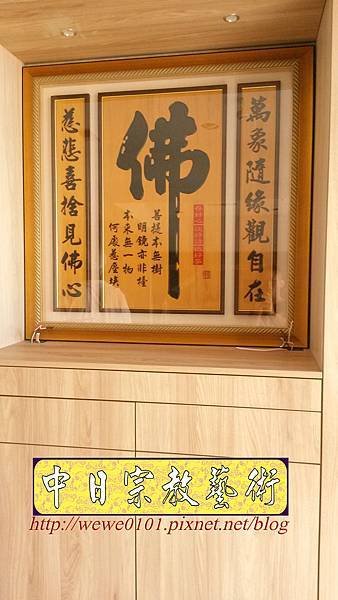 萬象隨緣觀自在
佛
菩提本無樹
明鏡亦非檯
本來無一物
何處惹塵埃
慈悲喜捨見佛心
中日宗教藝術
http://wewe0101.pixnet.net/blog